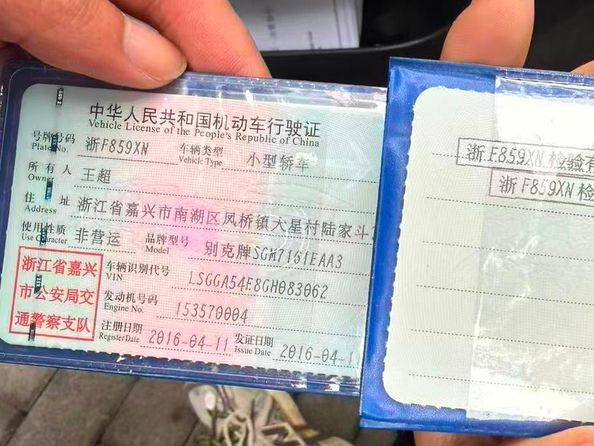 中华人民共和国机动车行驶证
Vehicle License of the People's Republic of China
号牌号码 浙F859XN 车辆类型 小型轿车
Plate No. Vehicle Type
所有人 王超
Owner
住址 浙江省嘉兴市南湖区凤桥镇大星村陆家斗
Address
使用性质 非营运 品牌型号 别克牌SGM7161EAA3
Use Character Model
浙江省嘉兴
市公安局交
通警察支队
车辆识别代号 LSGGA54E8GH083062
VIN
发动机号码 153570004
Engine No.
注册日期 2016-04-11 发证日期 2016-04-1
Register Date Issue Date
浙F859XN 检验
浙F859XN 检